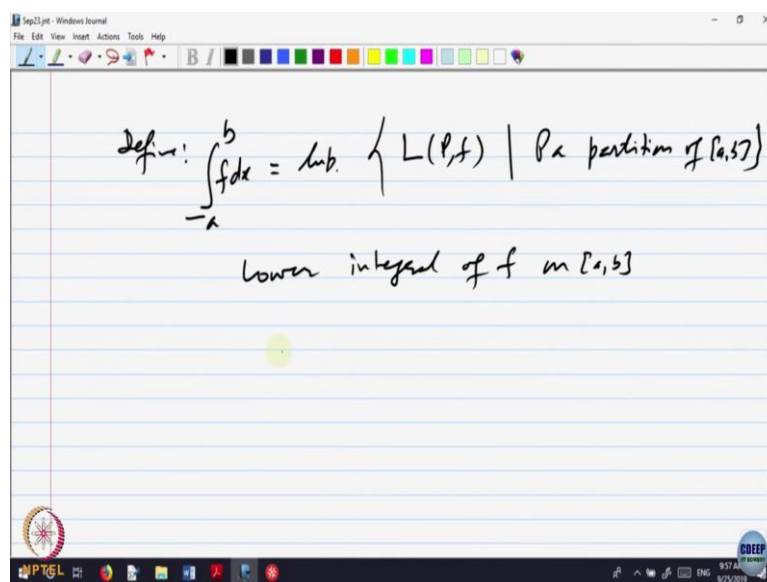 Sep23.jnt - Windows Journal
File Edit View Insert Actions Tools Help
B I
Define: ∫_{-a}^{b} f dx = lub. { L(P,f) | P a partition of [a,b] }
Lower integral of f on [a,b]
NPTEL
CDEEP
IIT BOMBAY
ENG
9:57 AM
9/25/2019